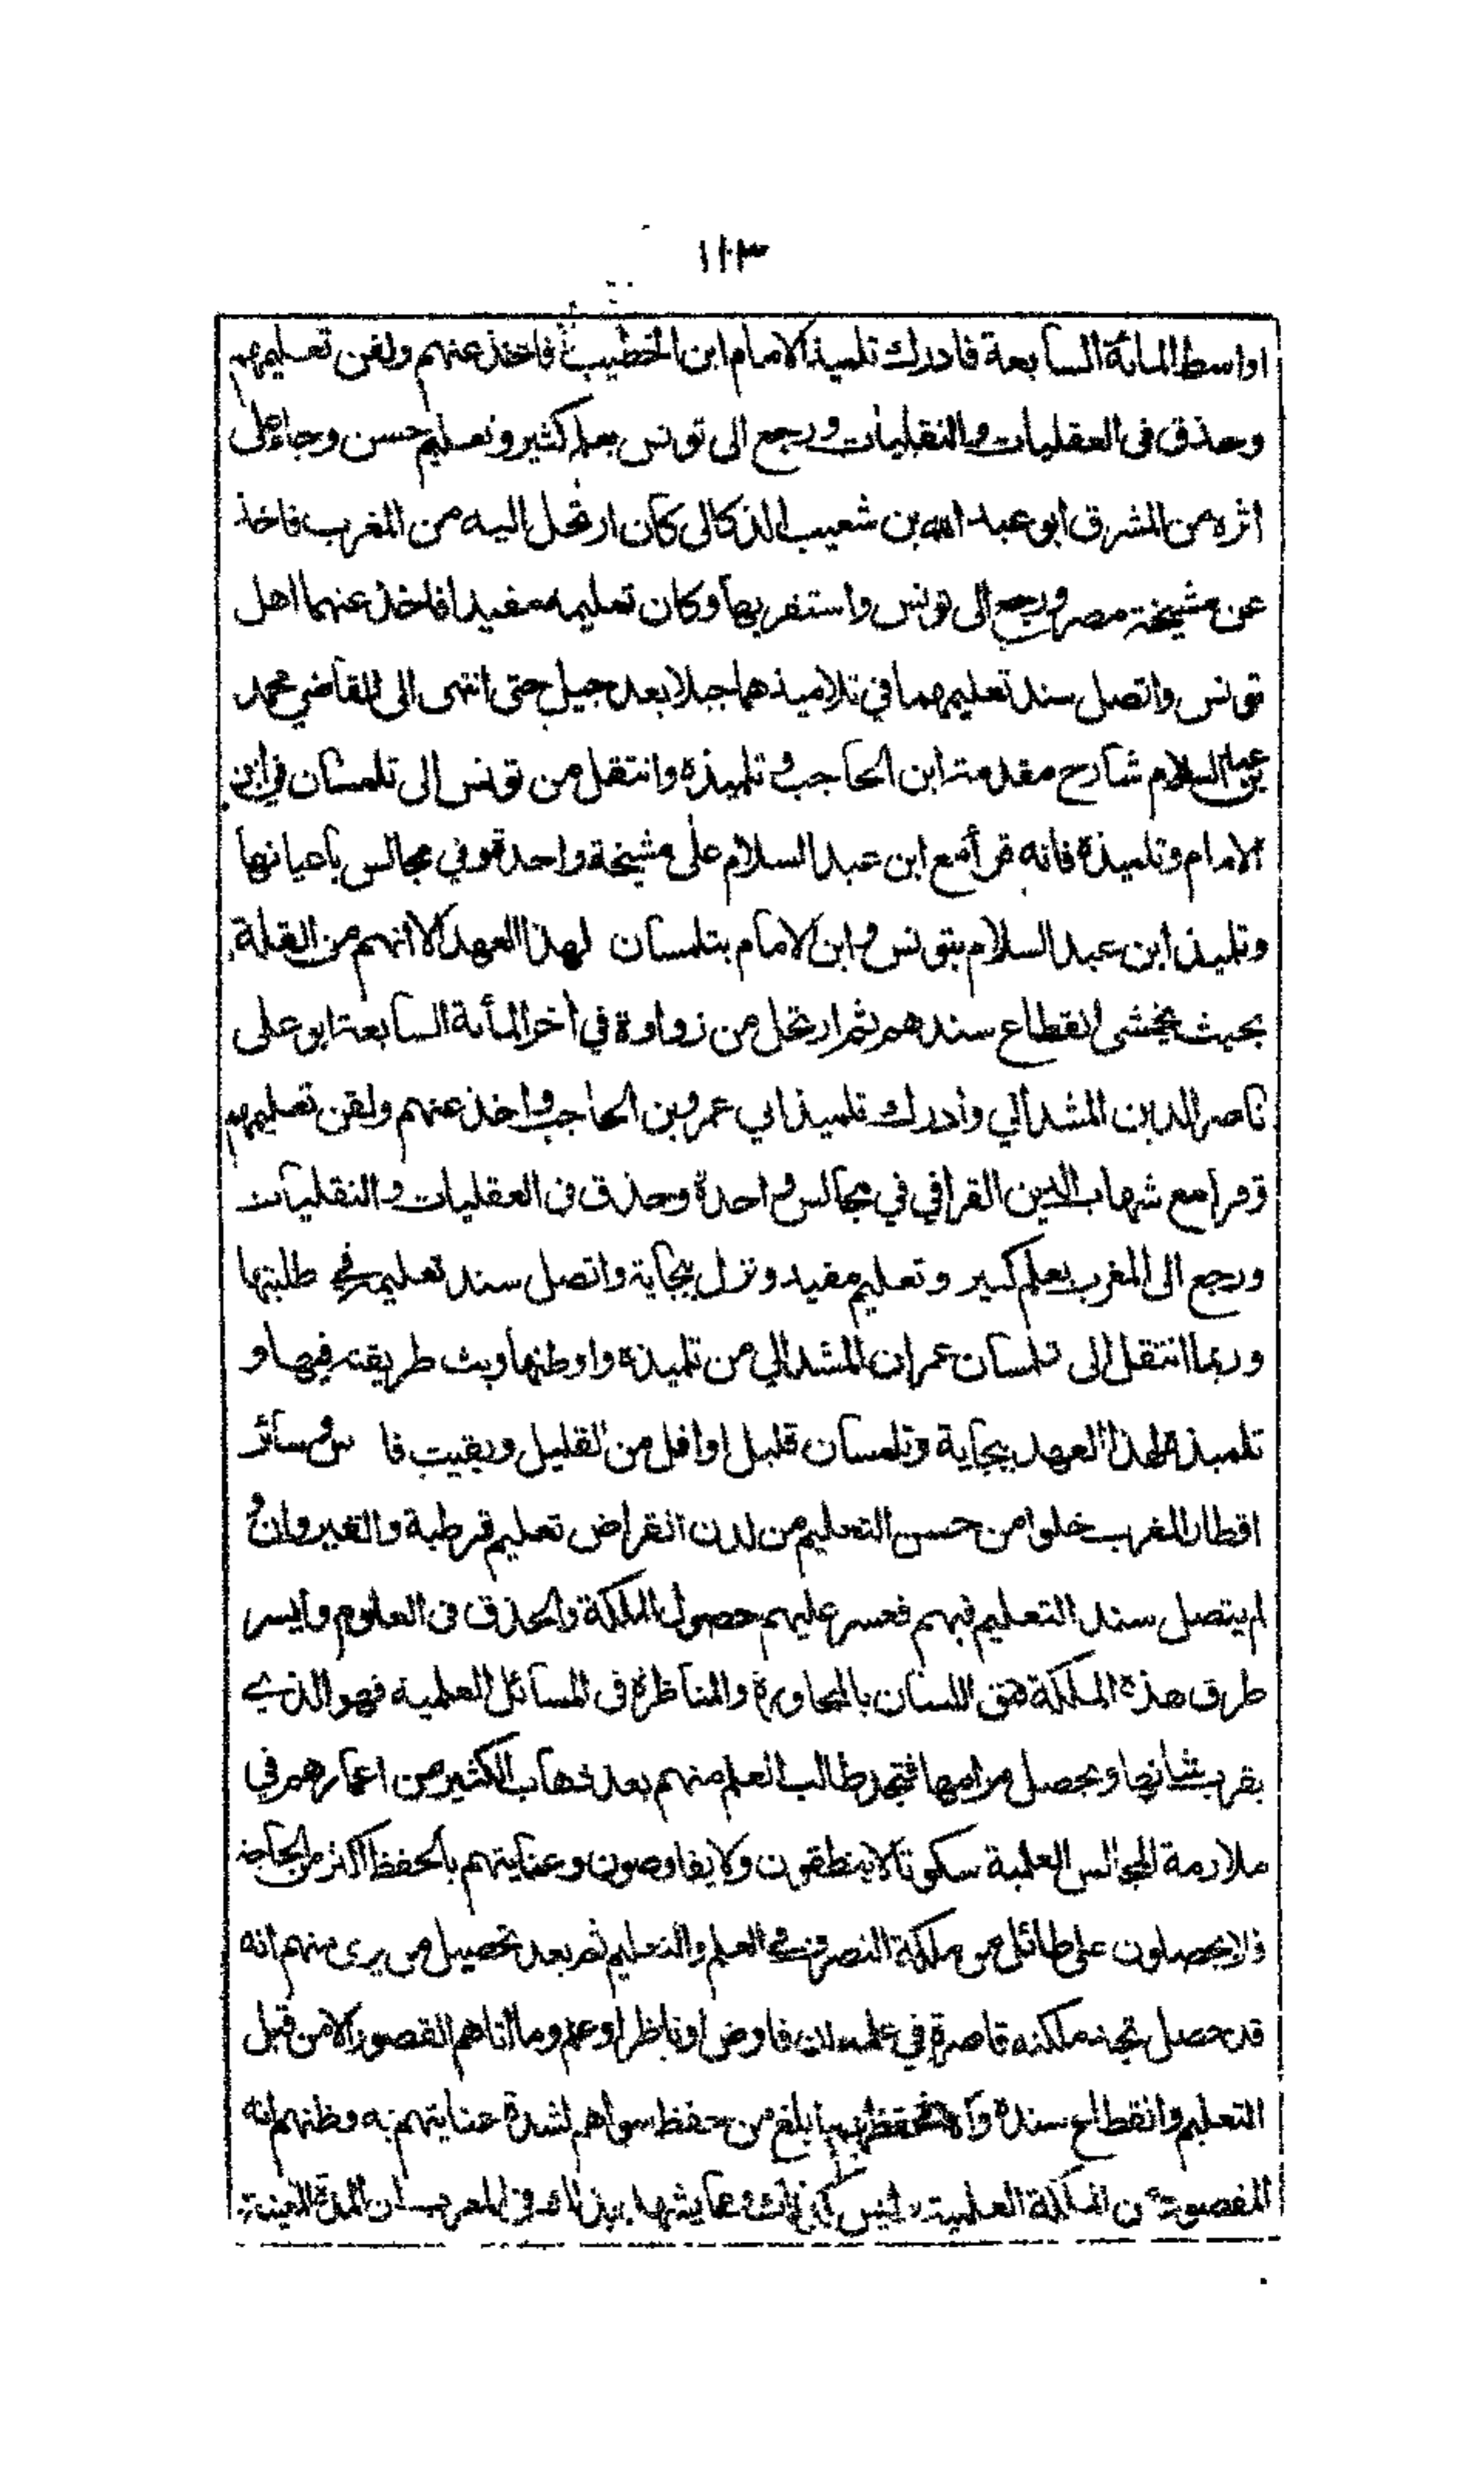 ١١٣
اواسط المائة السابعة فادرك تلميذ الامام ابن الخطيب فاخذ عنهم ولقن تعليمهم
وحذق فى العقليات والنقليات ورجع الى تونس بعلم كثير وتعليم حسن وجاء على
اثره من المشرق ابو عبد الله بن شعيب الدكالى كان ارتحل اليه من المغرب فاخذ
عن مشيخة مصر ورجع الى تونس واستقر بها وكان تعليمه مفيدا فاخذ عنهما اهل
تونس واتصل سند تعليمهما في تلاميذهما جيلا بعد جيل حتى انتهى الى القاضي محمد
بن عبد السلام شارح مقدمة ابن الحاجب و تلميذه وانتقل من تونس الى تلمسان في ابن
الامام وتلميذه فانه قرأ مع ابن عبد السلام على مشيخة واحدة وفي مجالس باعيانها
وتلميذ ابن عبد السلام بتونس وابن الامام بتلمسان لهذا العهد الا انهم من القلة
بحيث يخشى انقطاع سندهم ثم ارتحل من زواوة في أخر المأئة السابعة ابو على
ناصر الدين المشدالي وأدرك تلميذ ابي عمرو بن الحاجب واخذ عنهم ولقن تعليمهم
وقرا مع شهاب الدين القرافي في مجالس واحدة وحذق فى العقليات والنقليات
ورجع الى المغرب بعلم كبير وتعليم مفيد ونزل ببجاية واتصل سند تعليمه في طلبتها
وربما انتقل الى تلمسان عمران المشدالي من تلميذه واوطنها وبث طريقته فيها و
تلميذه لهذا العهد ببجاية وتلمسان قليل او اقل من القليل وبقيت فا س وسائر
اقطار المغرب خلوا من حسن التعليم من لدن انقراض تعليم قرطبة والقيروان و
لم يتصل سند التعليم فيهم فعسر عليهم حصول الملكة والحذق فى العلوم وأيسر
طرق هذه الملكة فتق اللسان بالمحاورة والمناظرة فى المسائل العلمية فهو الذي
يقرب شأنها ويحصل مرامها فتجد طالب العلم منهم بعد ذهاب الكثير من اعمارهم في
ملازمة المجالس العلمية سكوتا لا ينطقون ولا يفاوضون وعنايتهم بالحفظ اكثر من الحاجة
فلا يحصلون على طائل من ملكة التصرف في العلم والتعليم ثم بعد تحصيل من يرى منهم انه
قد حصل تجد ملكته قاصرة في علمه ان فاوض او ناظر او علم وما اتاهم القصور الا من قبل
التعليم وانقطاع سنده والا فحفظهم ابلغ من حفظ سواهم لشدة عنايتهم به وظنهم انه
المقصود من الملكة العلمية وليس كذلك ومما يشهد بذلك في المغرب ان المدة المعينة